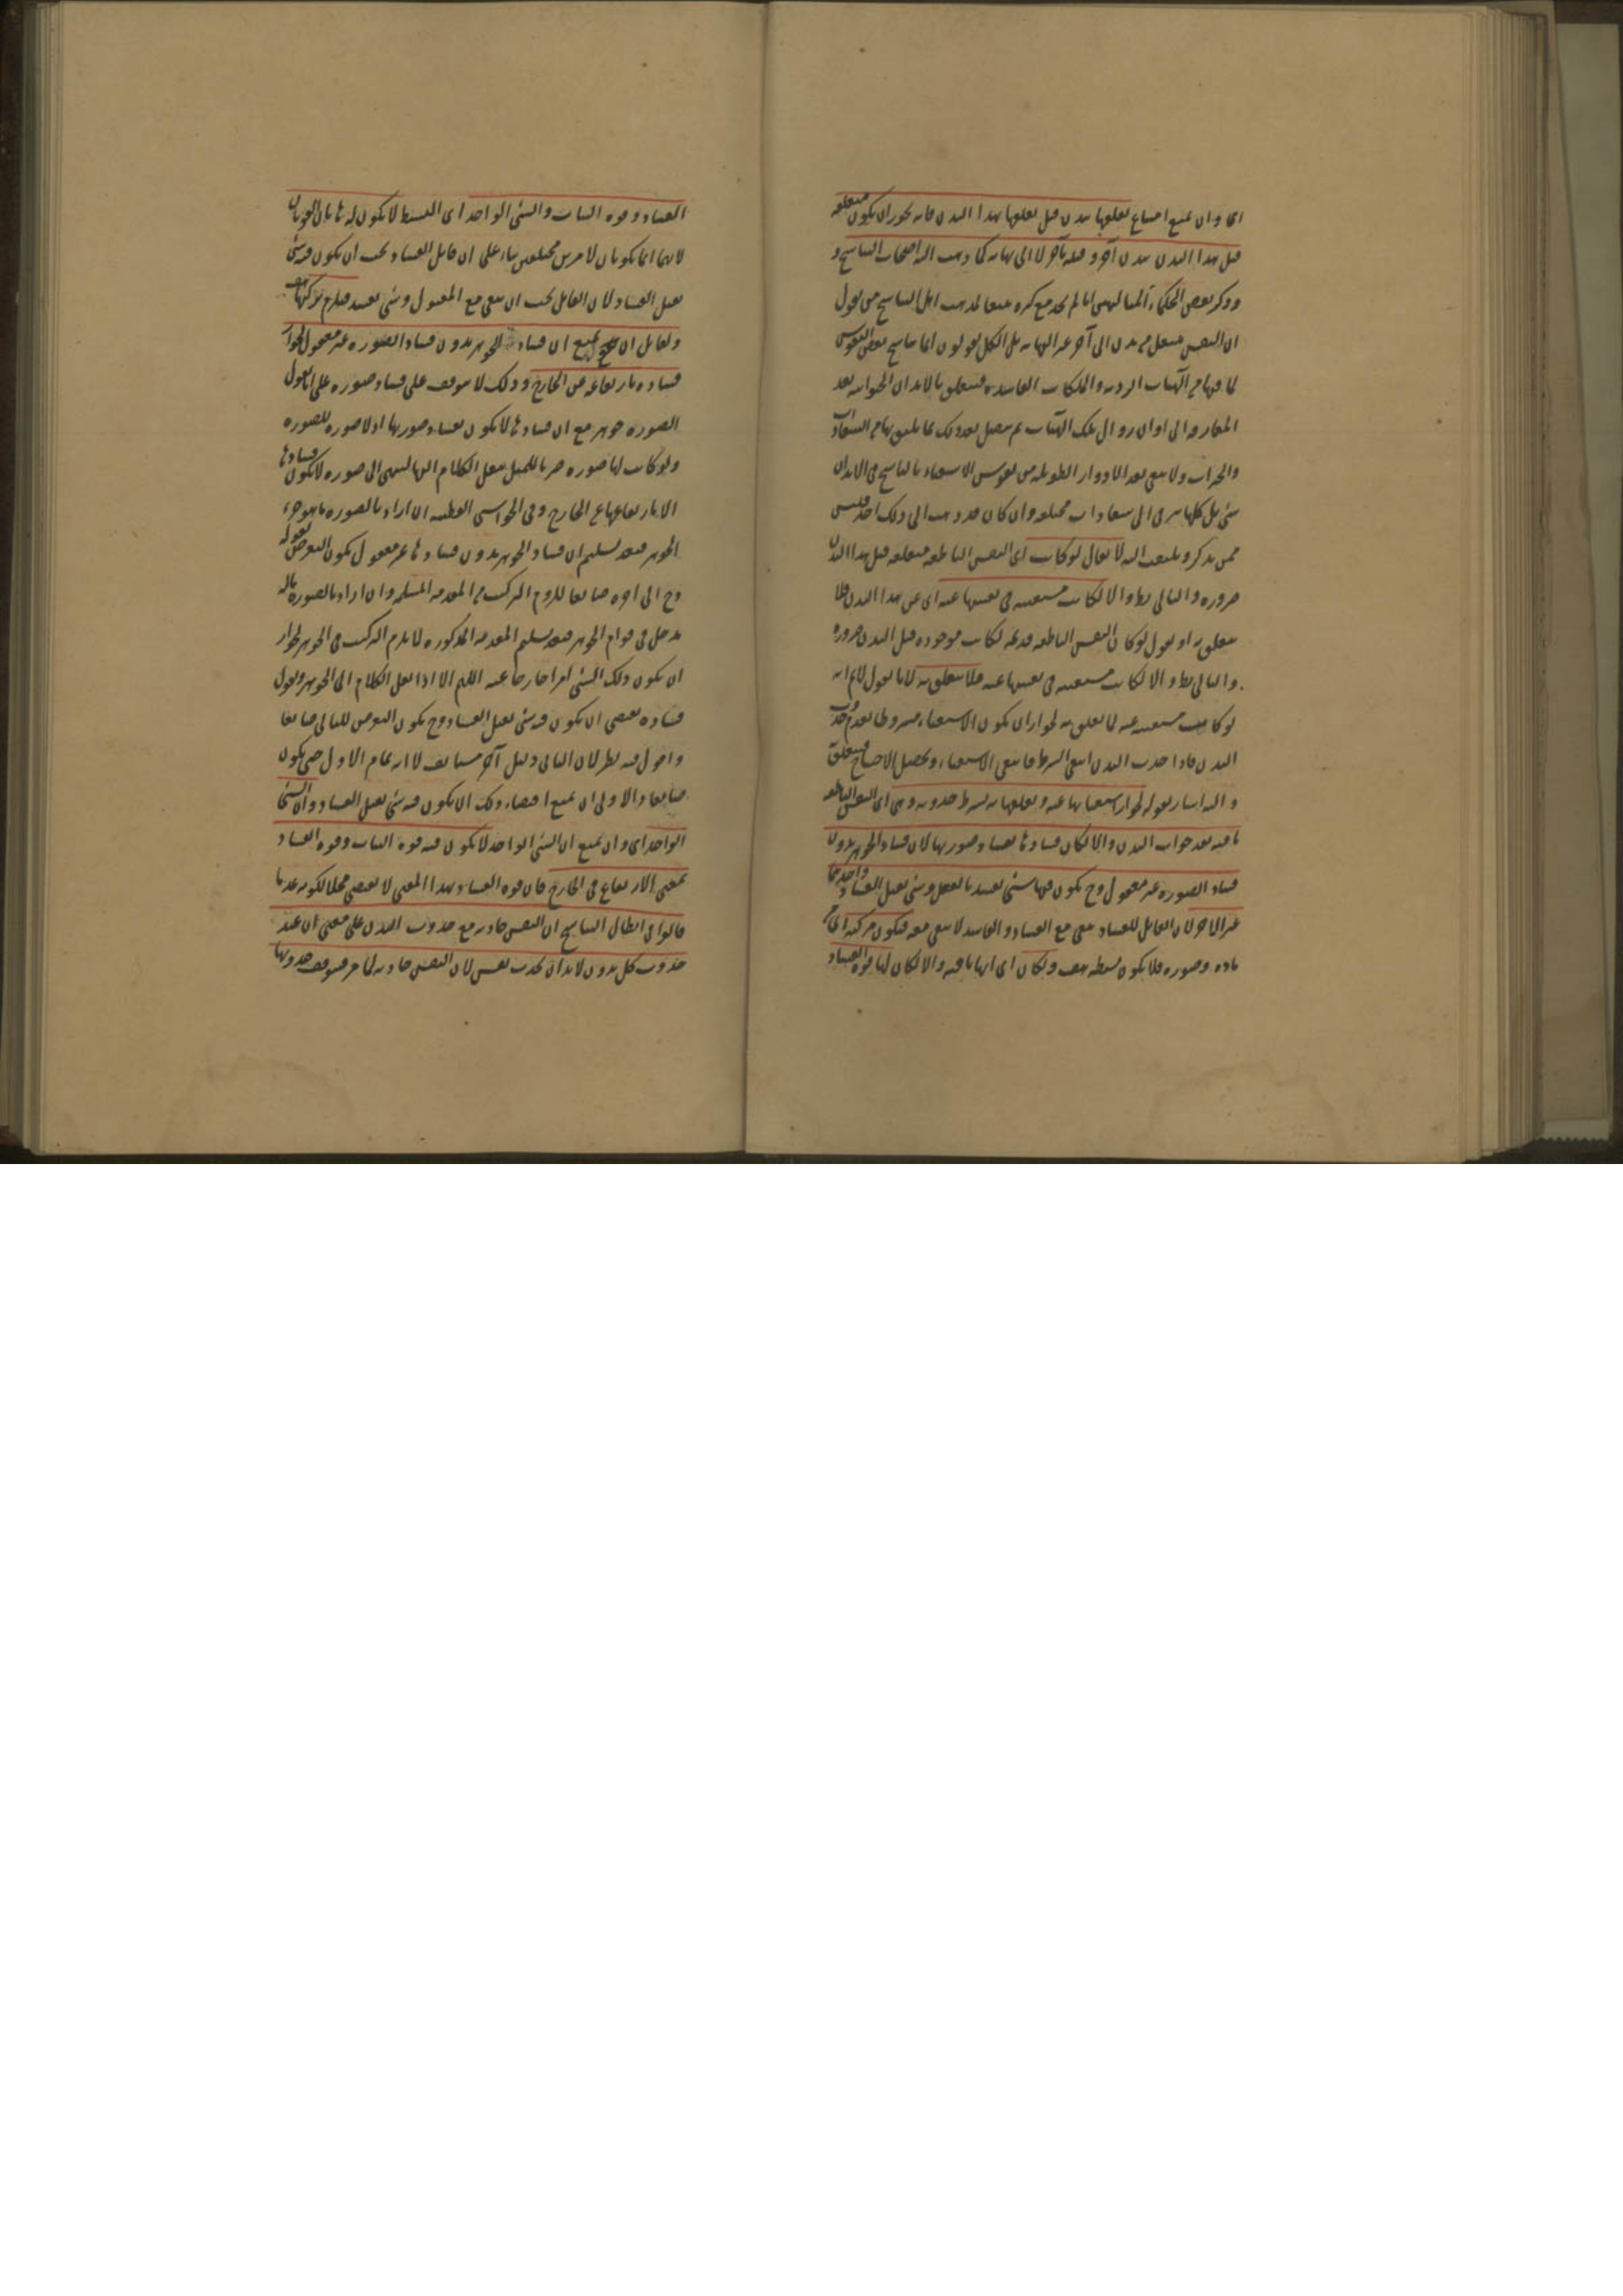 اى وان يمنع امتناع تعلقها ببدن قبل تعلقها بهذا البدن فانه يجوز ان يكون متعلقة
قبل هذا البدن ببدن آخر وقبله بآخر لا الى نهاية كما ذهب اليه اصحاب التناسخ و
وذكر بعض الحكماء المتالهين انا لم نجد مع كثرة متعا لمذهب اهل التناسخ من يقول
ان النفس ينتقل من بدن الى آخر غير النهاية بل الكل يقولون انما تناسخ بعض النفوس
لما فيها من الهيئات الردية والملكات الفاسدة فيتعلق بالابدان الحيوانية بعد
المفارقة الى اوان زوال تلك الهيئات ثم يتصل بعد ذلك بما يليق بها من السعادات
والخيرات ولا يبقى بعد الادوار الطويلة من نفوس الاشقياء بالتناسخ في الابدان
شئ بل كلها يترقى الى سعادات مختلفة وان كان قد ذهب الى ذلك احد فليس
ممن يذكر ويلتفت اليه لا يقال لو كانت اى النفس الناطقة متعلقة قبل هذا البدن
ضرورة والتالى بط والا لكانت مستغنية في تعينها عنه اى عن هذا البدن فلا
يتعلق به او نقول لو كان النفس الناطقة قديمة لكانت موجودة قبل البدن ضرورة
والتالى بط والا لكانت مستغنية في تعينها عنه فلا يتعلق به لانا نقول لانم انه
لو كانت مستغنية عنه لما تعلق به لجواز ان يكون الاستغناء مشروطا بعدم حدوث
البدن فاذا حدث البدن انتفى الشرط فانتفى الاستغناء وتحصل الاحتياج فيتعلق
واليه اشار بقوله لجواز استغنائها عنه وتعلقها به بشرط حدوثه وهى اى النفس الناطقة
باقية بعد خراب البدن والا لكان فسادها بفساد صورتها لان فساد الجوهر بدون
فساد الصورة غير معقول وح يكون فيها شئ يفسد بالفعل وشئ يقبل الفساد واحدهما
غير الآخر لان القابل للفساد يبقى مع الفساد والفاسد لا يبقى معه فيكون مركبة اى من
مادة وصورة فلا يكون بسيطة هف ولكان اى انها باقية والا لكان لها قوة الفساد
الفساد وقوة الثبات والشئ الواحد اى البسيط لا يكون له هاتان القوتان
لانهما انما يكونان لامرين مختلفين بناء على ان قابل الفساد يجب ان يكون فيه شئ
يقبل الفساد لان القابل يجب ان يبقى مع المقبول وشئ يفسد فيلزم تركبها هف
ولقائل ان يمنع ان فساد الجوهر بدون فساد الصورة غير معقول لجواز
فساده بارتفاعه عن الخارج وذلك لا يتوقف على فساد صورة على انا نقول
الصورة جوهر مع ان فسادها لا يكون بفساد صورتها اذ لا صورة للصورة
ولو كانت لها صورة ضربا للمثل ننقل الكلام اليها لينتهى الى صورة لا يكون فسادها
الا بارتفاعها عن الخارج وفي الحواشى القطبية ان اراد بالصورة ما هو جزء
الجوهر فبعد تسليم ان فساد الجوهر بدون فسادها غير معقول يكون التعرض لقوله
وح الى اخره ضايعا للزوم التركيب من المقدمة المسلمة وان اراد بالصورة ما له
مدخل في قوام الجوهر فبعد تسليم المقدمة المذكورة لا يلزم التركيب في الجوهر لجواز
ان يكون ذلك الشئ امرا خارجا عنه اللهم الا اذا نقل الكلام الى الجوهر ونقول
فساده يقتضى ان يكون فيه شئ يقبل الفساد وح يكون التعرض للتالى ضايعا
واقول فيه نظر لان الثانى دليل آخر مستانف لا انه تمام الاول حتى يكون
ضايعا والاولى ان يمنع اقتضاء ذلك ان يكون فيه شئ يقبل الفساد وان الشئ
الواحد اى وان يمنع ان الشئ الواحد لا يكون فيه قوة الثبات وقوة الفساد
بمعنى الارتفاع في الخارج فان قوة الفساد بهذا المعنى لا يقتضى محلا لكونه عدما
قالوا في ابطال التناسخ ان النفس حادثة مع حدوث البدن على معنى ان عند
حدوث كل بدن لابد ان يحدث نفس لان النفس حادثة لما مر فيتوقف حدوثها